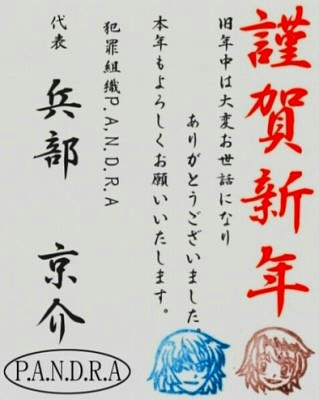 謹賀新年
旧年中は大変お世話になり
ありがとうございました。
本年もよろしくお願いいたします。
犯罪組織P.A.N.D.R.A
代表
兵部 京介
P.A.N.D.R.A